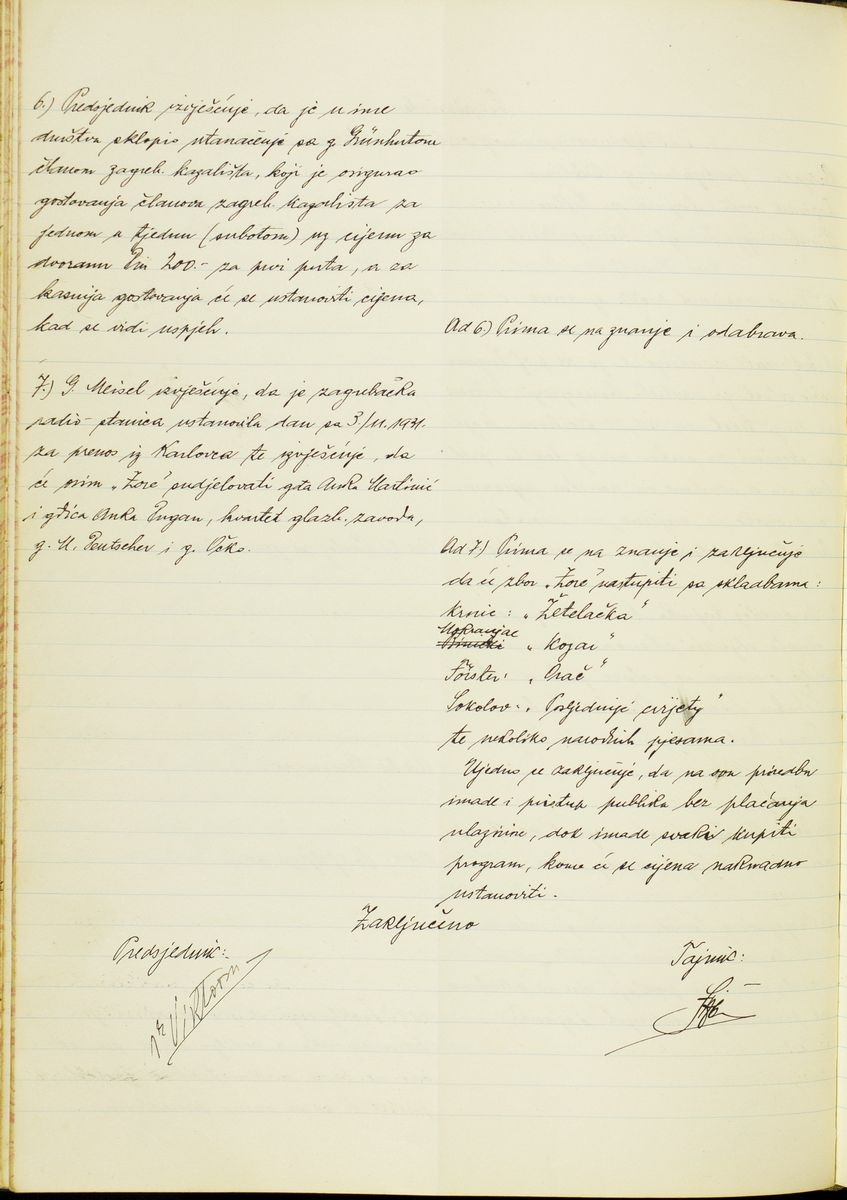 6.) Predsjednik izvješćuje, da je u ime
društva sklopio utanačenje sa g. Grünhutom
članom zagreb. kazališta, koji je osigurao
gostovanja članova zagreb. kazališta za
jednom u tjednu (subotom) uz cijenu za
dvoranu Din 200.- za prvi puta, a za
kasnija gostovanja će se ustanoviti cijena,
kad se vidi uspjeh.
Ad 6) Prima se na znanje i odabrava.
7.) G. Meisel izvješćuje, da je zagrebačka
radio-stanica ustanovila dan sa 3./II.1931.
za prenos iz Karlovca te izvješćuje, da
će osim „Zore" sudjelovati gđa Anka Martinić
i gđica Anka Dugan, kvartet glazb. zavoda,
g. M. Deutscher i g.
Ad 7) Prima se na znanje i zaključuje
da će zbor „Zore" nastupiti sa skladbama:
Krnic: „Žetelačka"
Mokranjac
Binički „Kozar"
Förster: „Orač"
Sokolov: „Posljednje cvijety"
te nekoliko narodnih pjesama.
Ujedno se zaključuje, da na ovu priredbu
imade i pristup publika bez plaćanja
ulaznine, dok imade svaki kupiti
program, kome će se cijena naknadno
ustanoviti.
Zaključeno
Predsjednik:
Tajnik: